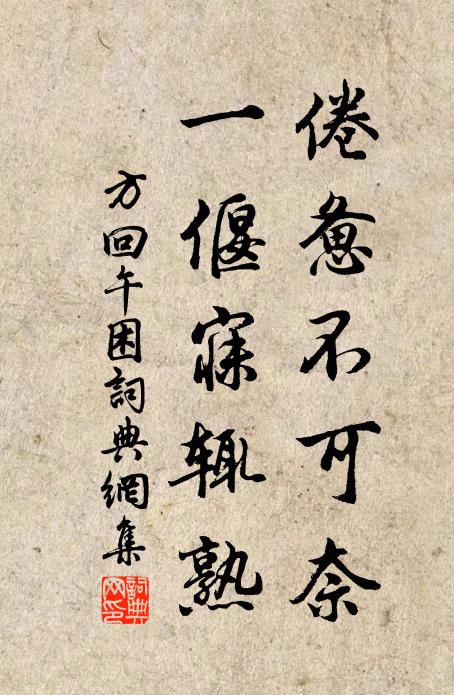 倦惫不可奈
一偃寐辄熟
方回午困詞典網集
詞典网印